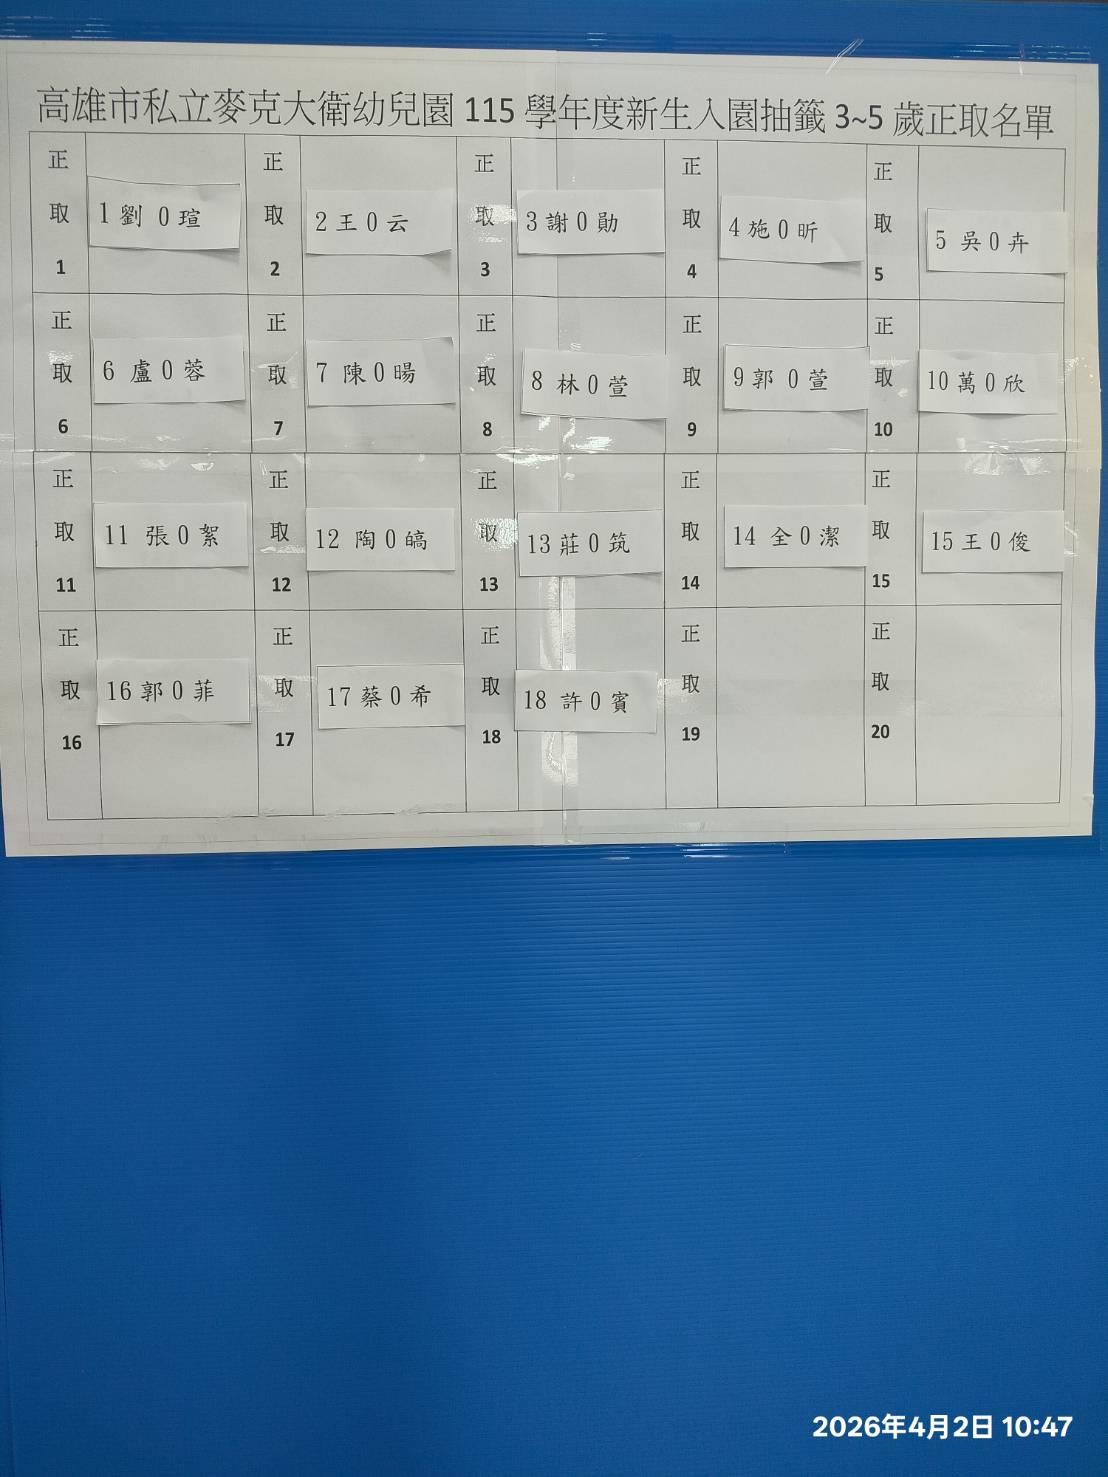 高雄市私立麥克大衛幼兒園 115 學年度新生入園抽籤 3~5 歲正取名單
正取1 1 劉 0 瑄 正取2 2 王 0 云 正取3 3 謝 0 勛 正取4 4 施 0 昕 正取5 5 吳 0 卉
正取6 6 盧 0 蓉 正取7 7 陳 0 暘 正取8 8 林 0 萱 正取9 9 郭 0 萱 正取10 10 萬 0 欣
正取11 11 張 0 絮 正取12 12 陶 0 皜 正取13 13 莊 0 筑 正取14 14 全 0 潔 正取15 15 王 0 俊
正取16 16 郭 0 菲 正取17 17 蔡 0 希 正取18 18 許 0 賓 正取19 正取20
2026年4月2日 10:47